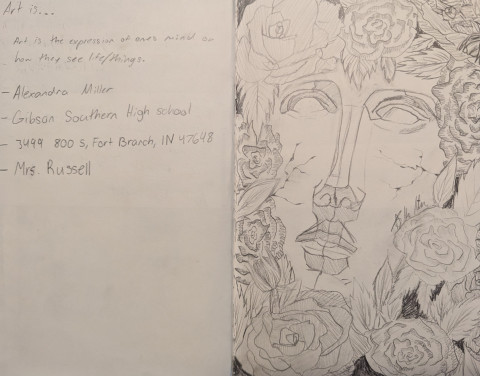 Art is...
Art is the expression of ones mind on
how they see life/things.
– Alexandra Miller
– Gibson Southern High school
– 3499 800 S, Fort Branch, IN 47648
– Mrs. Russell